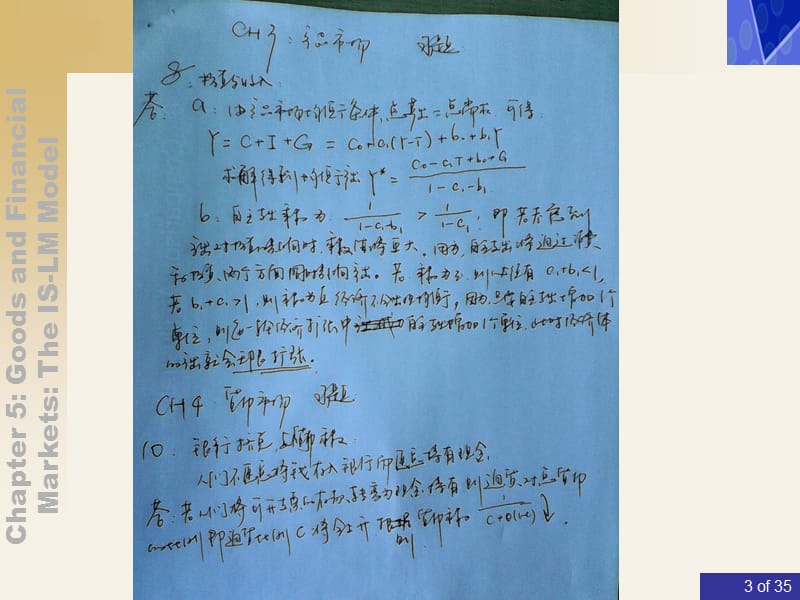 Chapter 5: Goods and Financial
Markets: The IS-LM Model
CH3: 产品市场 习题
8. 投资与收入
答: a: 由产品市场均衡条件, 总产出=总需求, 可得
Y = C+I+G = c₀+c₁(Y-T)+b₀+b₁Y
求解得到均衡产出 Y* = (c₀-c₁T+b₀+G)/(1-c₁-b₁)
b: 自主支出乘数为: 1/(1-c₁-b₁) > 1/(1-c₁), 即若考虑到
产出对投资影响时, 乘数值将更大。因为, 自主支出将通过消费
和投资, 两个方面同时影响产出。若乘数为正, 则必有 c₁+b₁<1,
若 b₁+c₁>1, 则乘数为负, 经济不会出现均衡, 因为, 只要自主支出增加1个
单位, 则每一轮经济扩张中 自主支出增加1个单位, 此时经济体
的产出就会无限扩张。
CH4 货币市场 习题
10: 银行挤兑, 与货币乘数
人们不愿意将钱存入银行而愿意持有现金,
答: 若人们将可开支票存款转变为现金持有, 则通货对总货币
的比例即通货比例 c 将会上升, 则货币乘数 1/(c+θ(1-c)) ↓.
3 of 35